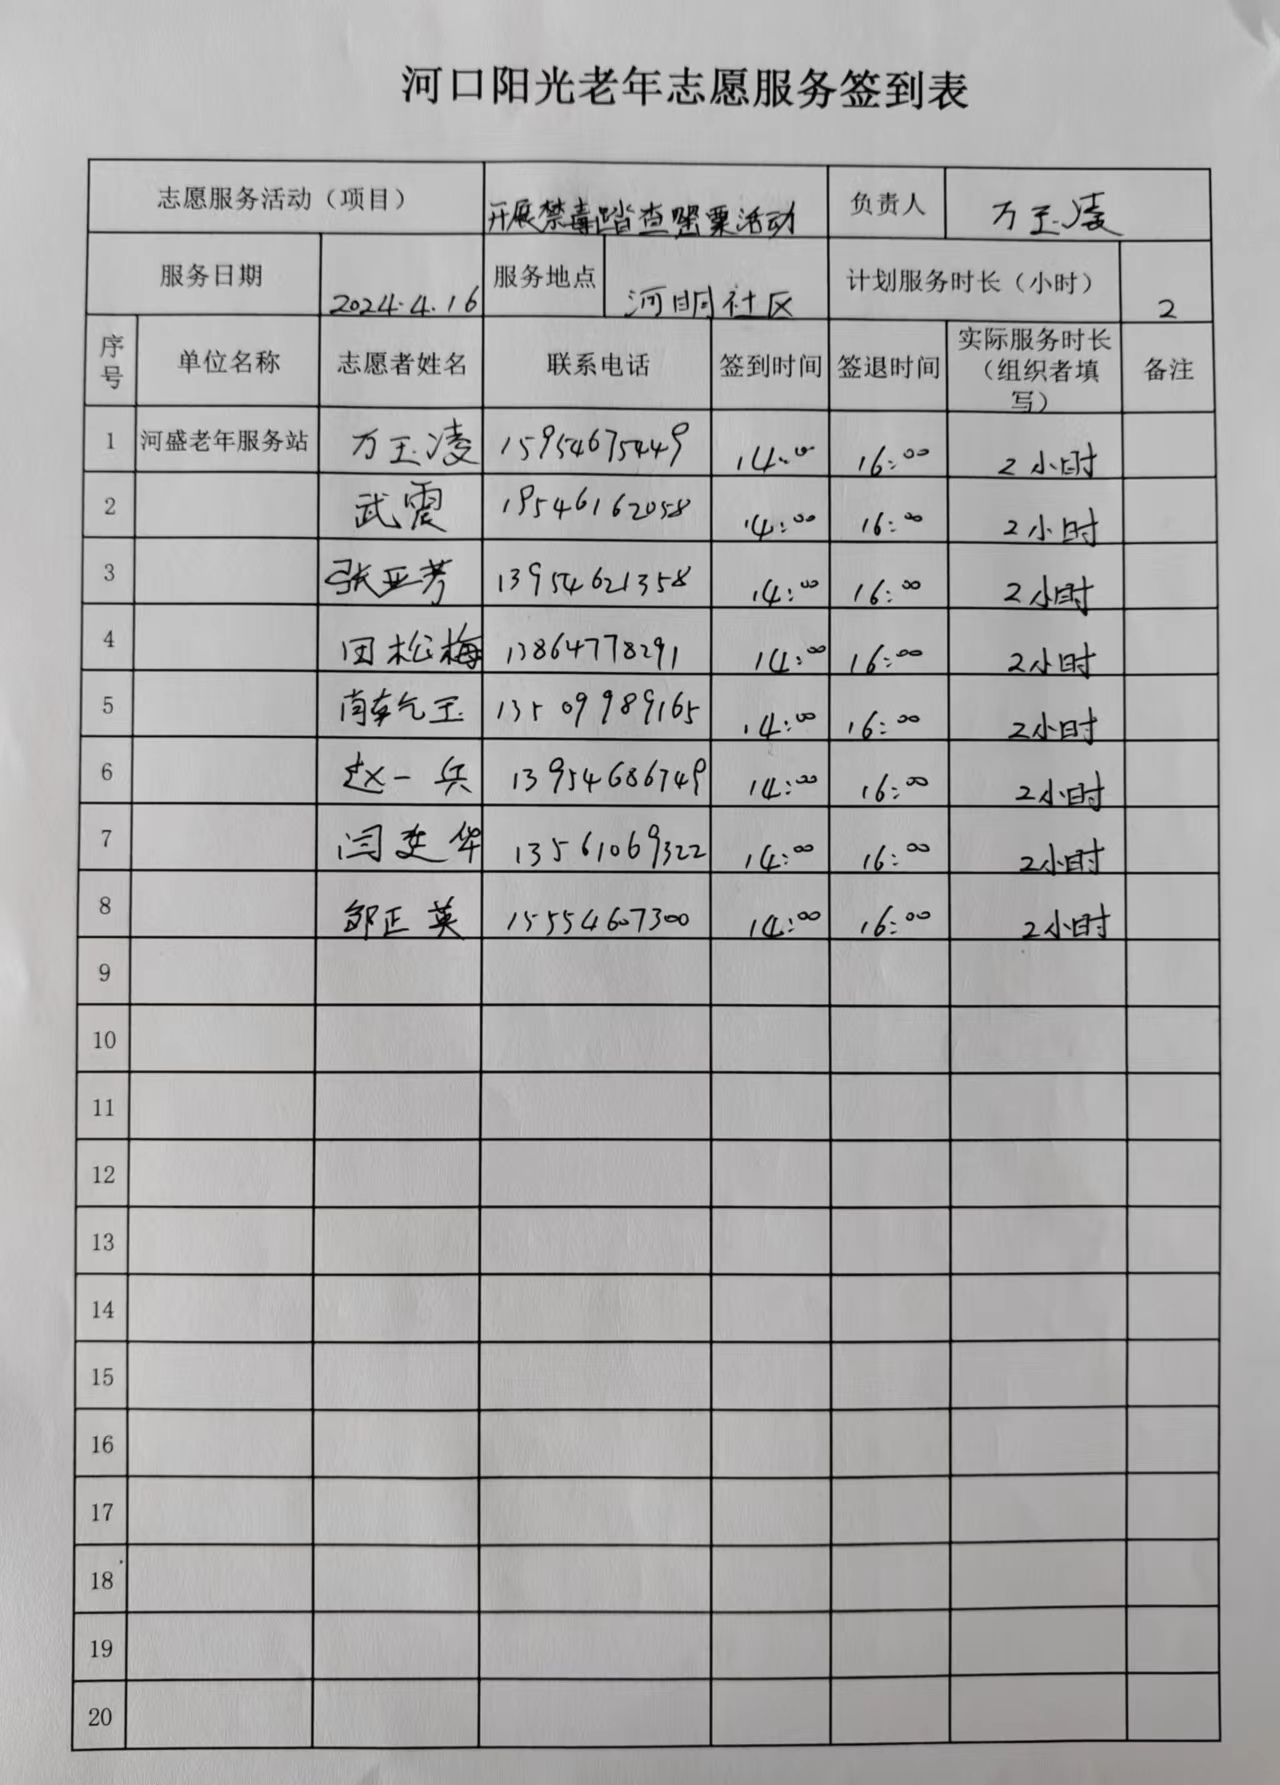 河口阳光老年志愿服务签到表
志愿服务活动（项目） 开展禁毒踏查罂粟活动 负责人 万玉凌
服务日期 2024.4.16 服务地点 河明社区 计划服务时长（小时） 2
序号 单位名称 志愿者姓名 联系电话 签到时间 签退时间 实际服务时长（组织者填写） 备注
1 河盛老年服务站 万玉凌 15954675449 14:00 16:00 2小时
2 武震 19546162058 14:00 16:00 2小时
3 张亚芳 13954621358 14:00 16:00 2小时
4 田松梅 13864778291 14:00 16:00 2小时
5 南乾玉 13509989165 14:00 16:00 2小时
6 赵一兵 13954686749 14:00 16:00 2小时
7 闫廷华 13561069322 14:00 16:00 2小时
8 邹正英 15554607300 14:00 16:00 2小时
9
10
11
12
13
14
15
16
17
18
19
20